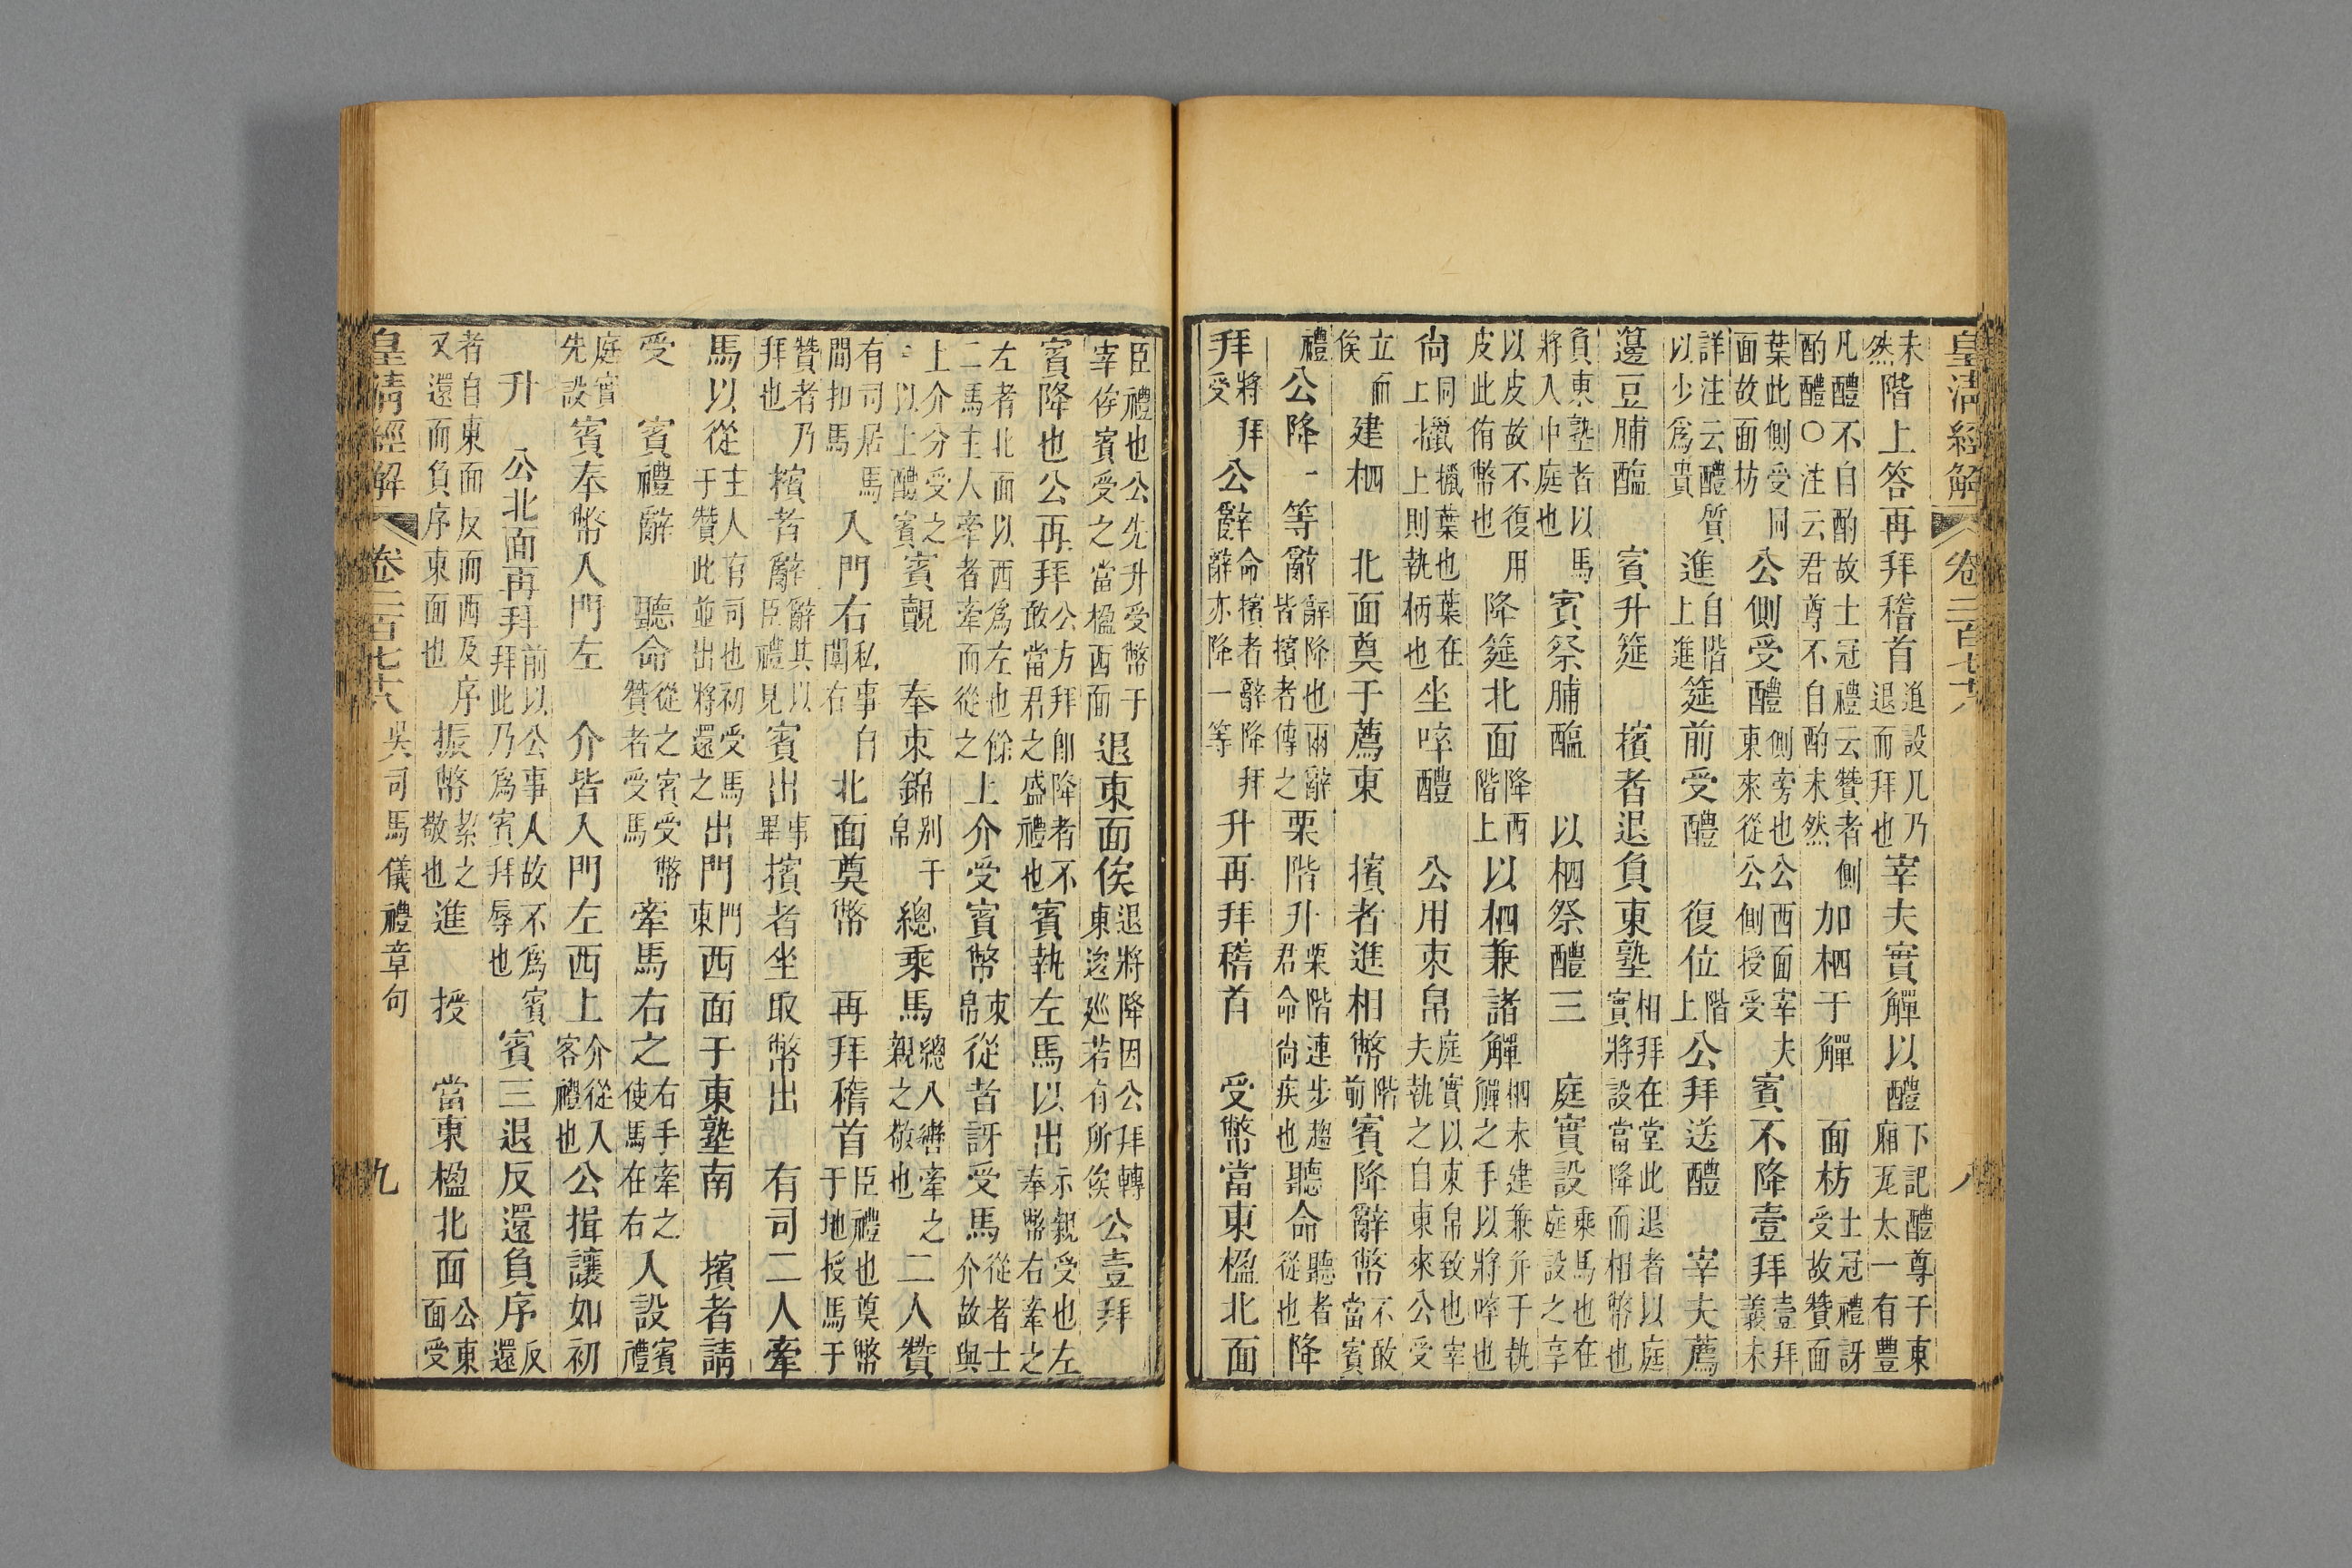 皇清經解 卷二百七十八 八
未然階上答再拜稽首進設几乃退而拜也宰夫實觶以醴下記醴尊于東廂瓦太一有豐
凡醴不自酌故士冠禮云贊者側酌醴○注云君尊不自酌未然加柶于觶 面枋士冠禮訝受故贊面
葉此側受同面故面枋公側受醴側旁也公西面宰夫東來從公側授受賓不降壹拜壹拜義未
詳注云醴質以少爲貴進自階上進筵前受醴 復位階上公拜送醴 宰夫薦
籩豆脯醢 賓升筵 擯者退負東塾相拜在堂此退者以庭實將設當降而相幣也
負東塾者以馬將入中庭也賓祭脯醢 以柶祭醴三 庭實設乘馬也在庭設之享
以皮故不復用皮此侑幣也降筵北面降西階上以柶兼諸觶柶未建兼并于執觶之手以將啐也
尚同擸擸葉也葉在上擸上則執柄也坐啐醴 公用束帛庭實以束帛致也宰夫執之自東來公受
立而俟建柶 北面奠于薦東 擯者進相幣階前賓降辭幣不敢當賓
禮公降一等辭辭降也兩辭皆擯者傳之栗階升栗階連步趨君命尚疾也聽命聽者從也降
拜將拜受公辭命擯者辭降拜辭亦降一等升再拜稽首 受幣當東楹北面
臣禮也公先升受幣于宰俟賓受之當楹西面退東面俟退將降因公拜轉東逡巡若有所俟公壹拜
賓降也公再拜公方拜卽降者不敢當君之盛禮也賓執左馬以出示親受也左奉幣右牽之
左者北面以西爲左也餘二馬主人牽者牽而從之上介受賓幣束帛從者訝受馬從者士介故與
上介分受之○以上醴賓賓覿 奉束錦别于帛總乘馬總八轡牽之親之敬也二人贊
有司居馬間扣馬入門右私事自闑右北面奠幣 再拜稽首臣禮也奠幣于地授馬于
贊者乃拜也擯者辭辭其以臣禮見賓出事畢擯者坐取幣出 有司二人牽
馬以從主人有司也初受馬于贊此並出將還之出門門東西面于東塾南 擯者請
受 賓禮辭 聽命從之賓受幣贊者受馬牽馬右之右手牽之使馬在右入設賓禮
庭實先設賓奉幣入門左 介皆入門左西上介從入客禮也公揖讓如初
升 公北面再拜前以公事人故不爲賓拜此乃爲賓拜辱也賓三退反還負序反還
者自東面反而西及序又還而負序東面也振幣絜之敬也進 授 當東楹北面公東面受
皇清經解 卷二百七十八 吳司馬儀禮章句 九